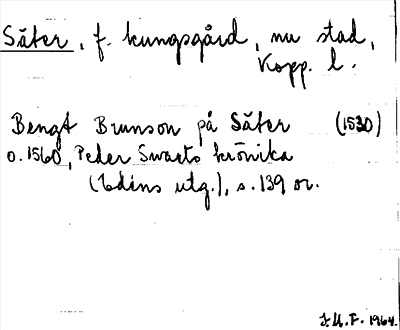 Säter, f. kungsgård, nu stad,
Kopp. l.
Bengt Brunson på Säter (1530)
o. 1560, Peder Swarts krönika
(Edéns utg.), s. 139 or.
J.M.F. 1964.